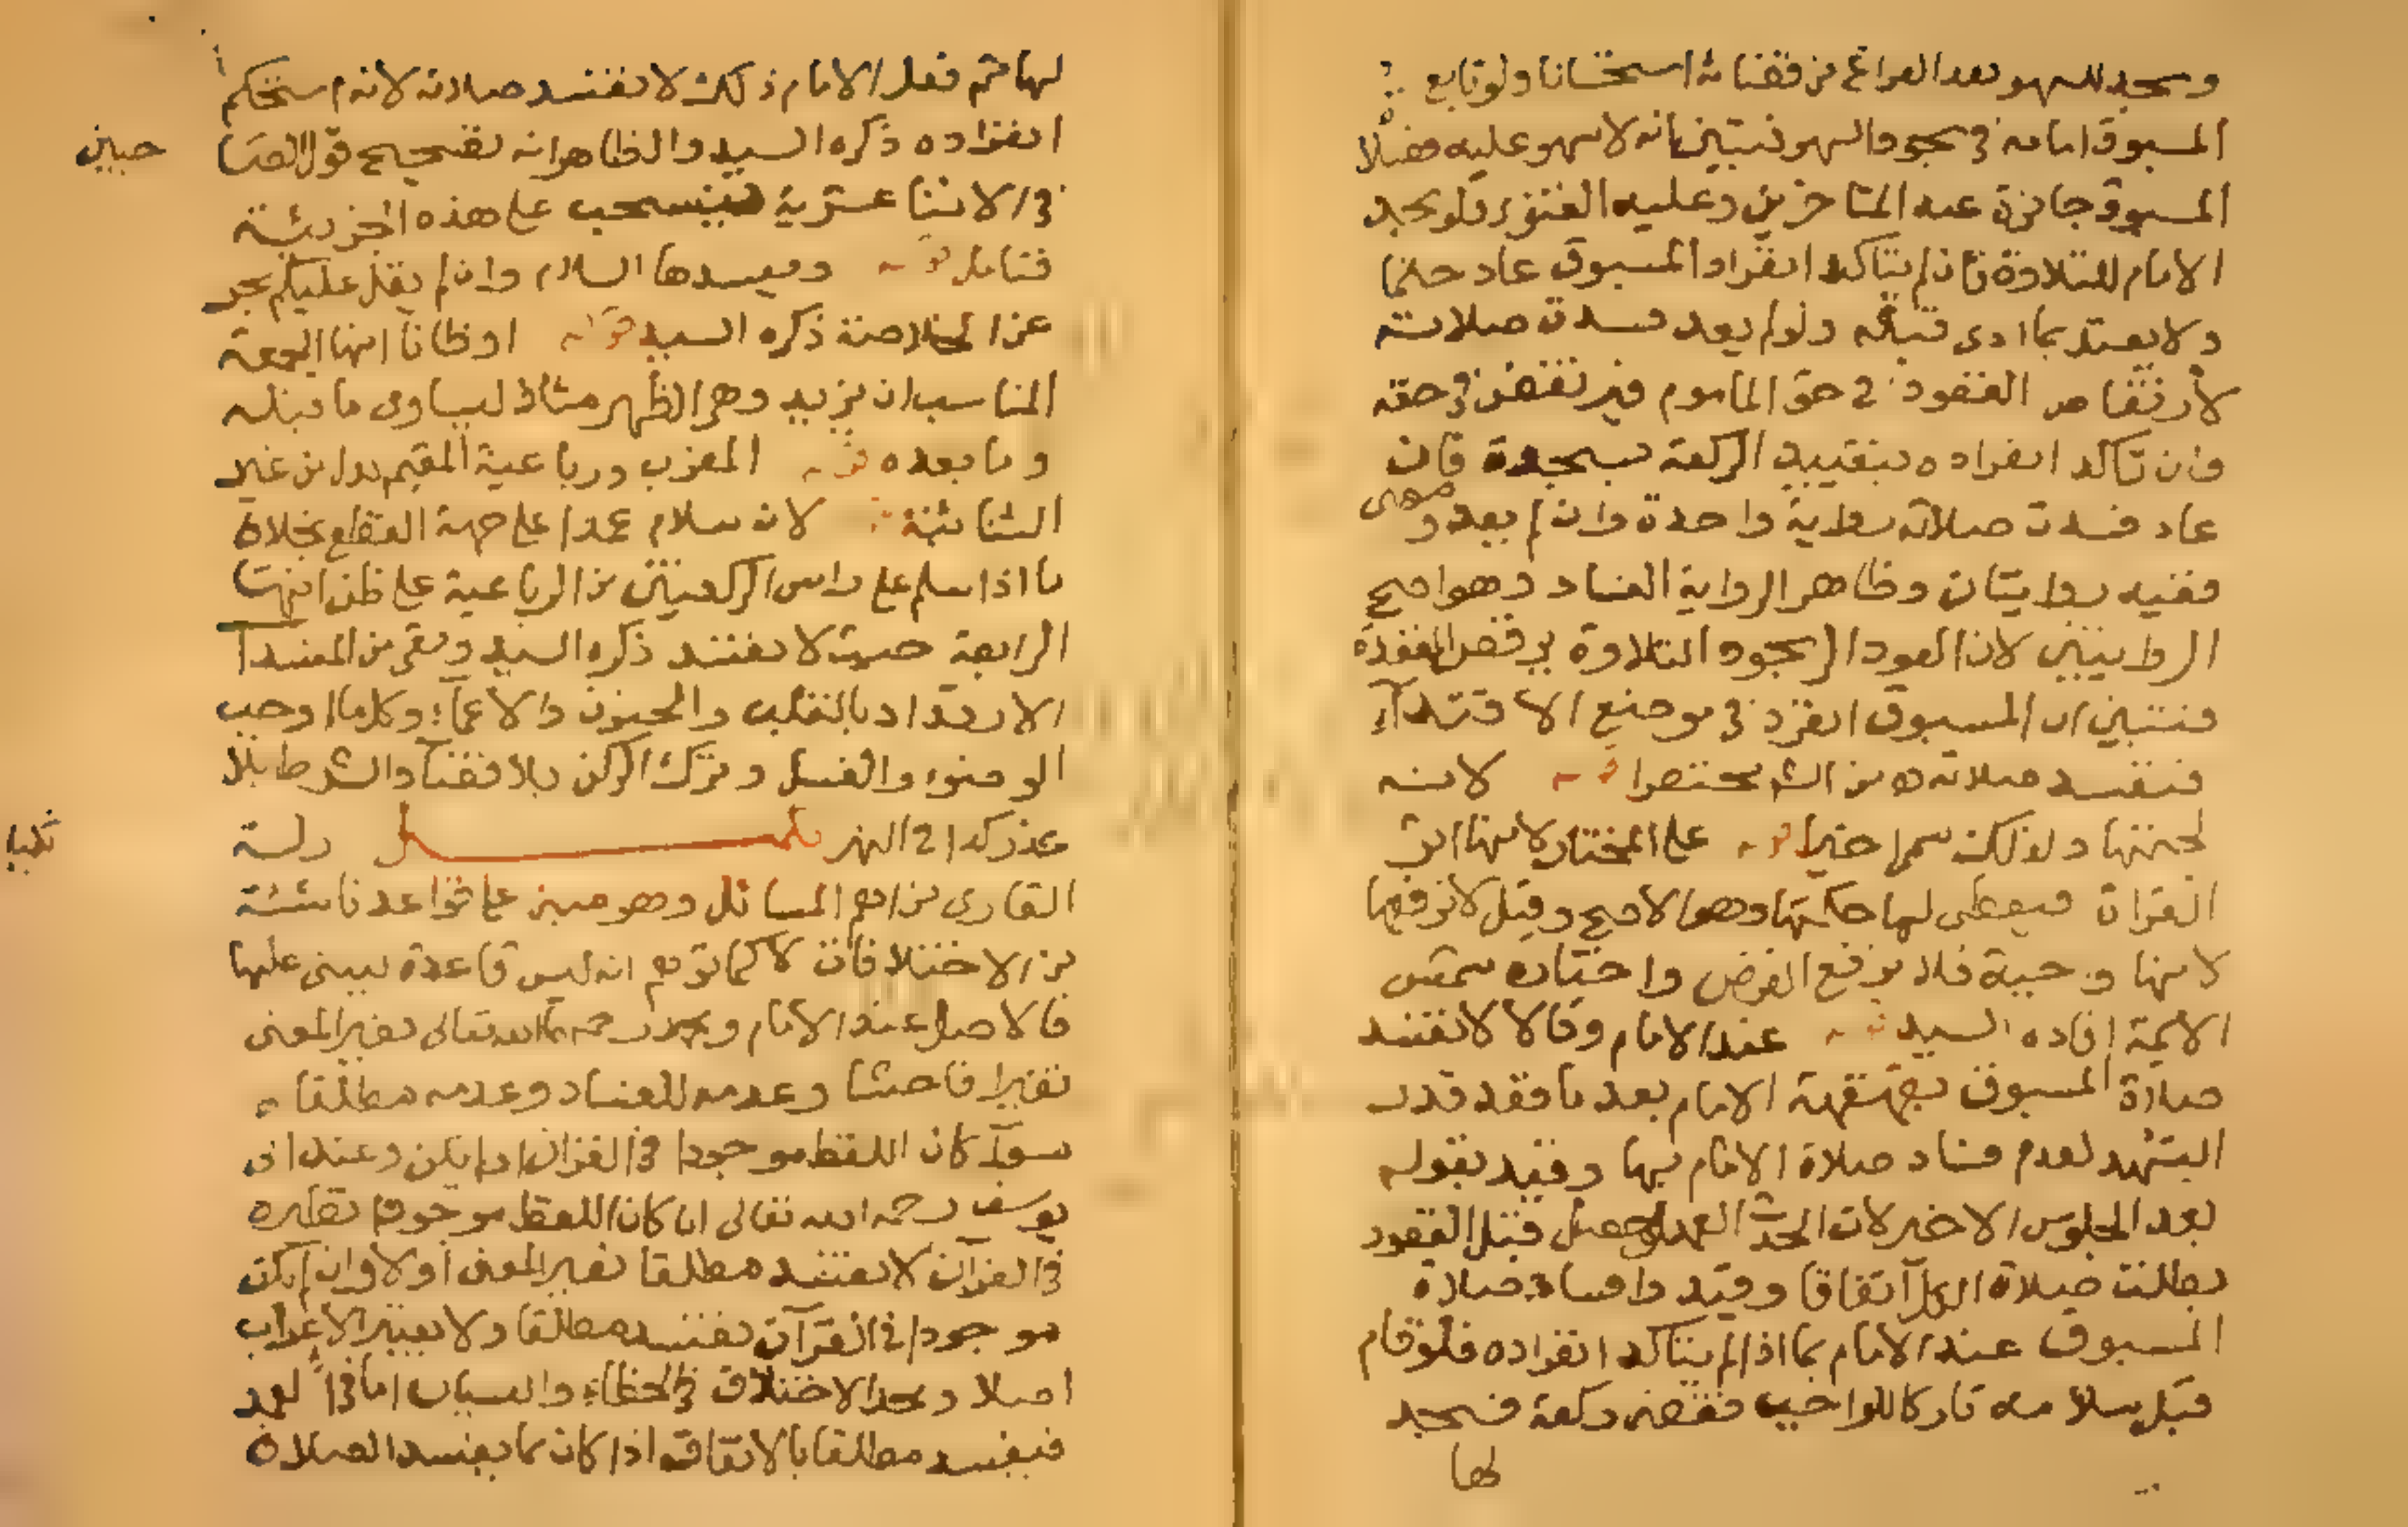 ويسجد للسهو بعد الفراغ من قضائه استحسانا ولو تابع
المسبوق امامه في سجود السهو فتبين انه لا سهو عليه فصلاة
المسبوق جائزة عند المتاخرين وعليه الفتوى ولو سجد
الامام للتلاوة فان لم يتاكد انفراد المسبوق عاد حتما
ولا يعتد بما ادى قبله ولو لم يعد فسدت صلاته
لارتفاض القعود في حق الماموم فيرتفض في حقه
وان تاكد انفراده بتقييد الركعة بسجدة فان
عاد فسدت صلاته رواية واحدة وان لم يعد ومضى
ففيه روايتان وظاهر الرواية الفساد وهو اصح
الروايتين لان العود الى سجود التلاوة يرفض القعدة
فتبين ان المسبوق انفرد في موضع الاقتداء
فتفسد صلاته ه من الشرح مختصرا قوله لانه
لجنتها ولذلك سميا قوله على المختار لانها اثر
القراة فيعطى لها حكمها وهو الاصح وقيل لا ترفعها
لانها واجبة فلا ترفع الفرض واختاره شمس
الائمة افاده السيد قوله عند الامام وقالا لا تفسد
صلاة المسبوق بقهقهة الامام بعد ما قعد قدر
التشهد لعدم فساد صلاة الامام بها وقيد بقوله
بعد الجلوس الاخير لان الحدث العمد لو حصل قبل القعود
بطلت صلاة الكل اتفاقا وقيد وافساد صلاة
المسبوق عند الامام بما اذا لم يتاكد انفراده فلو قام
قبل سلامه تاركا للواجب فقضى ركعة فسجد
لها
لها ثم فعل الامام ذلك لا تفسد صلاته لانه استحكم
انفراده ذكره السيد والظاهر انه تصحيح قول الصا
حبين
في الاثنا عشرية فينسحب على هذه الجزئية
فتامل قوله ويفسدها السلام وان لم يقل عليكم بحر
عن الخلاصة ذكره السيد قوله او ظانا انها الجمعة
المناسب ان يزيد وهي الظهر مثلا ليساوي ما قبله
وما بعده قوله المغرب ورباعية المقيم بدل من غير
الثنائية لان سلام عمدا على جهة القطع بخلاف
ما اذا سلم على راس الركعتين من الرباعية على ظن انها
الرابعة حيث لا تفسد ذكره السيد وبقي من المفسدات
الارتداد بالقلب والجنون والاغماء وكل ما اوجب
الوضوء والغسل وترك الركن بلا قضاء والشرط بلا
عذر كذا في النهر تكميل زلة
تكميل
القاري من اهم المسائل وهو مبني على قواعد ناشئة
من الاختلافات لا كما توهم انه ليس قاعدة يبنى عليها
فالاصل عند الامام ومحمد رحمهما الله تعالى تغير المعنى
تغيرا فاحشا وعدمه للفساد وعدمه مطلقا
سواء كان اللفظ موجودا في القران او لم يكن وعند ابي
يوسف رحمه الله تعالى ان كان اللفظ موجودا نظيره
في القرآن لا تفسد مطلقا تغير المعنى اولا وان لم يكن
موجودا في القرآن تفسد مطلقا ولا يعتبر الاعراب
اصلا ومحل الاختلاف في الخطاء والنسيان اما في العمد
فيفسد مطلقا بالاتفاق اذا كان مما يفسد الصلاة